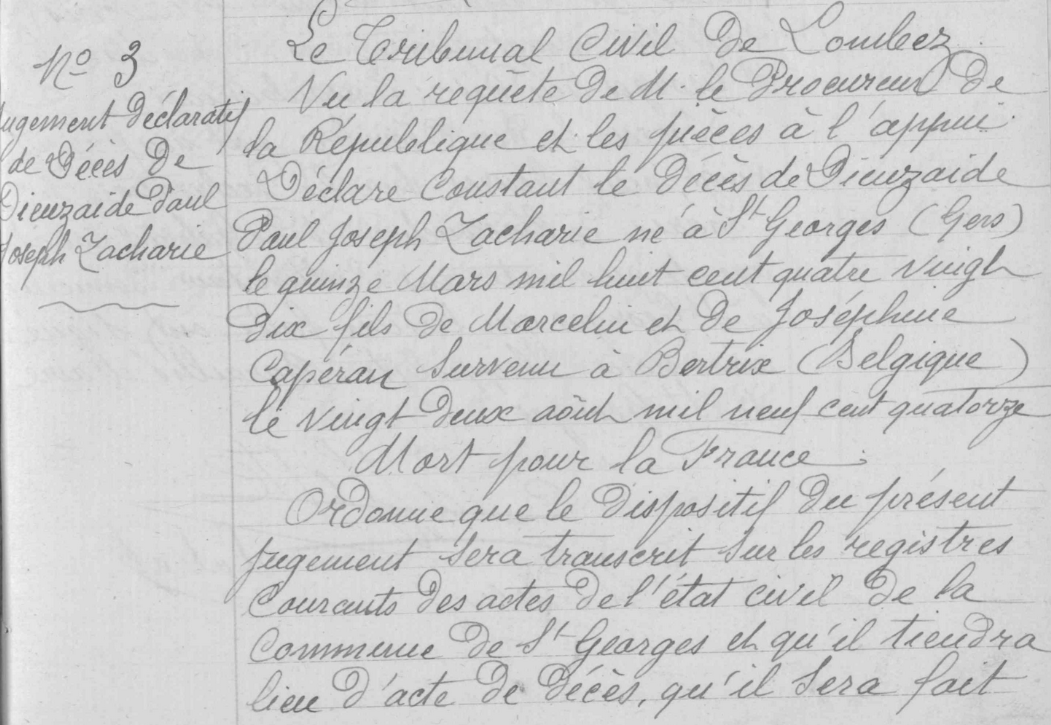 Nº 3
Jugement déclaratif
de Décès De
Dieuzaide Paul
Joseph Zacharie
Le Tribunal Civil De Lombez
Vu la requête de M. le Procureur De
la République et les pièces à l'appui.
Déclare Constant le Décès de Dieuzaide
Paul Joseph Zacharie né à St Georges (Gers)
le quinze Mars mil huit cent quatre vingt
dix fils de Marcelin et de Joséphine
Capéran Survenu à Bertrix (Belgique)
le vingt deux août mil neuf cent quatorze
Mort pour la France.
Ordonne que le Dispositif du présent
jugement sera transcrit sur les registres
Courants des actes de l'état civil de la
Commune de St Georges et qu'il tiendra
lieu d'acte de décès, qu'il sera fait